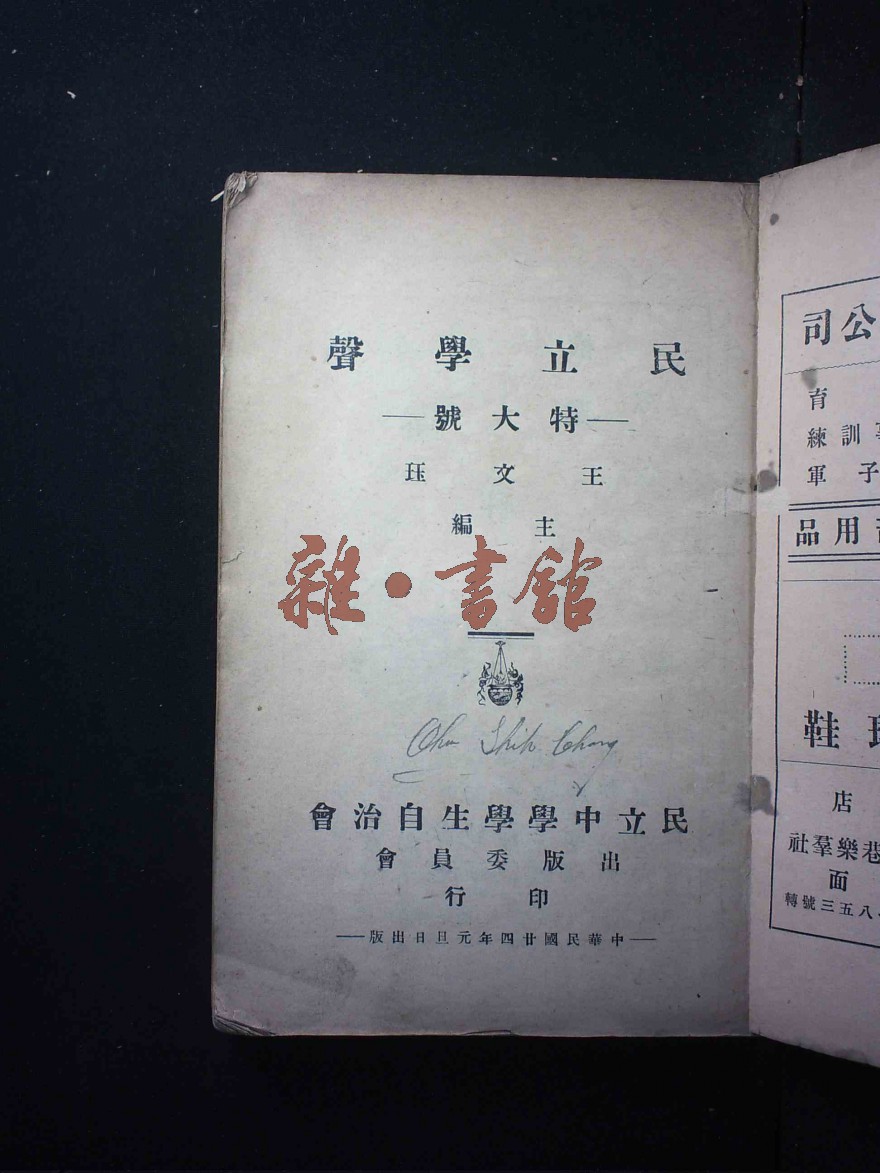 民立學聲
—特大號—
王文珏
主編
雜·書館
Chu Shih Chang
民立中學學生自治會
出版委員會
印行
—中華民國廿四年元旦日出版—
公司
育
訓練
子軍
用品
鞋
店
巷樂羣社
面
八五三號轉